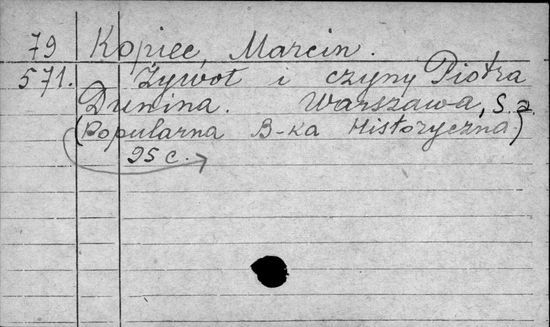 79 Kopiec, Marcin.
571. Żywot i czyny Piotra
Dunina. Warszawa, s.a.
(Popularna B-ka Historyczna)
95 c.